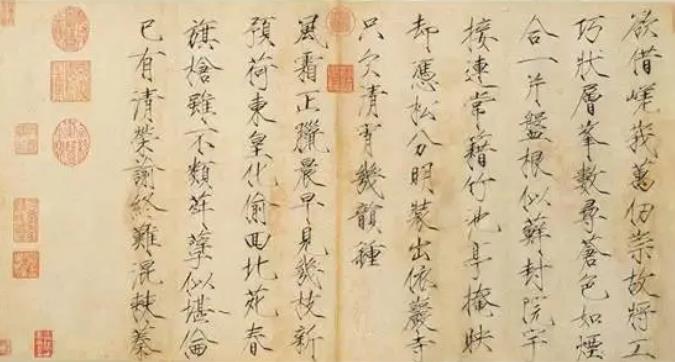 欲借嵯峩萬仞崇故將工
巧狀層峯數尋蒼色如煙
合一片盤根似蘚封院宇
接連常藉竹池亭掩映
却憑松分明裝出依巖寺
只欠清宵幾韻鍾
風霜正臘晨早見幾枝新
預荷東皇化偷回北苑春
旗槍雖不類荈蘖似堪倫
已有清榮諭終難混棘蓁